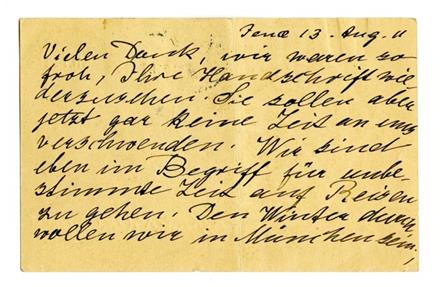 Jena 13. Aug. 11
Vielen Dank, wir waren so
froh, Ihre Handschrift wie
derzusehen. Sie sollen aber
jetzt gar keine Zeit an uns
verschwenden. Wir sind
eben im Begriff für unbe
stimmte Zeit auf Reisen
zu gehen. Den Winter durch
wollen wir in München sein,